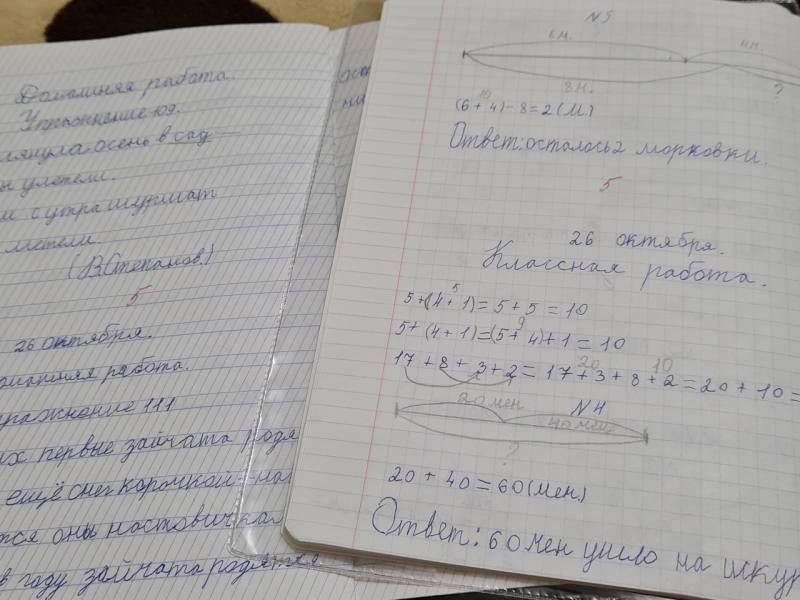 Домашняя работа.
Упражнение 109.
глянула осень в сад —
улетели.
с утра шуршат
метели.
(В. Степанов.)
5
26 октября.
Домашняя работа.
Упражнение 111
их первые зайчата родя
ещё снег корочкой
тся они настовичкам
в году зайчата родятся
N5
6 м.
4 м.
8 м.
?
10
(6 + 4) - 8 = 2 (м)
Ответ: осталось 2 морковки.
5
26 октября.
Классная работа.
5
5+(4+1)= 5 + 5 = 10
9
5+ (4+1)=(5+4)+1 = 10
20 10
17 + 8 + 3 + 2 = 17 + 3 + 8 + 2 = 20 + 10 =
N4
20 мен
40 мен
?
20 + 40 = 60 (мен)
Ответ: 60 мен ушло на шкур